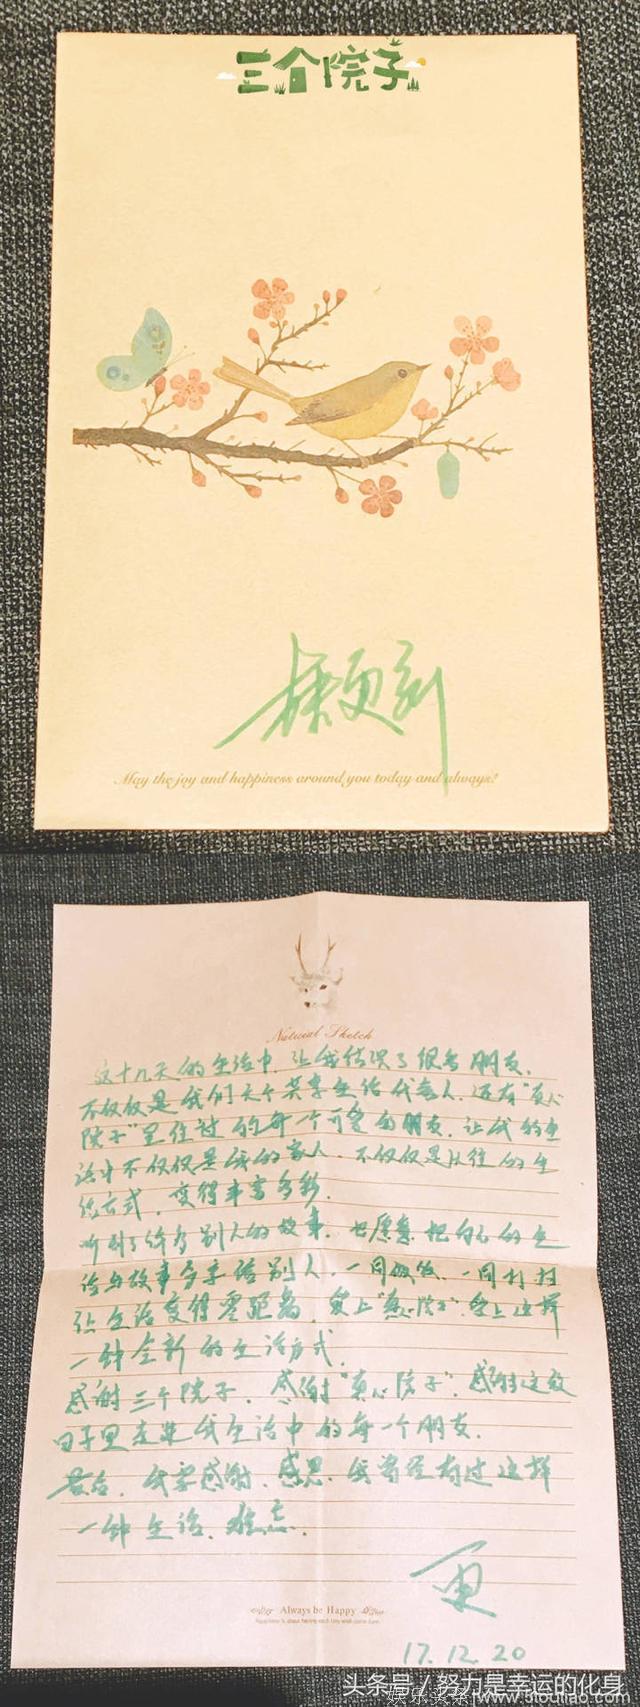 三个院子
May the joy and happiness around you today and always!
Natural Sketch
这十几天的生活中，让我结识了很多朋友，
不仅仅是我们六个共享生活代言人，还有“真心
院子”里住过的每一个可爱的朋友，让我的生
活中不仅仅是我的家人，不仅仅是以往的生
活方式，变得丰富多彩。
听到了许多别人的故事，也愿意把自己的生
活与故事分享给别人，一同做饭，一同打扫
让生活变得零距离，爱上“真心院子”，爱上这样
一种全新的生活方式。
感谢三个院子，感谢“真心院子”，感谢这段
日子里走进我生活中的每一个朋友。
最后，我要感谢，感恩，我曾经有过这样
一种生活，难忘。
更
Always be Happy
17.12.20
头条号／努力是幸运的化身